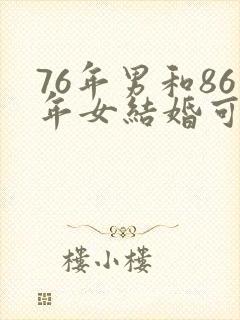 76年男和86
年女結婚可
樓小樓